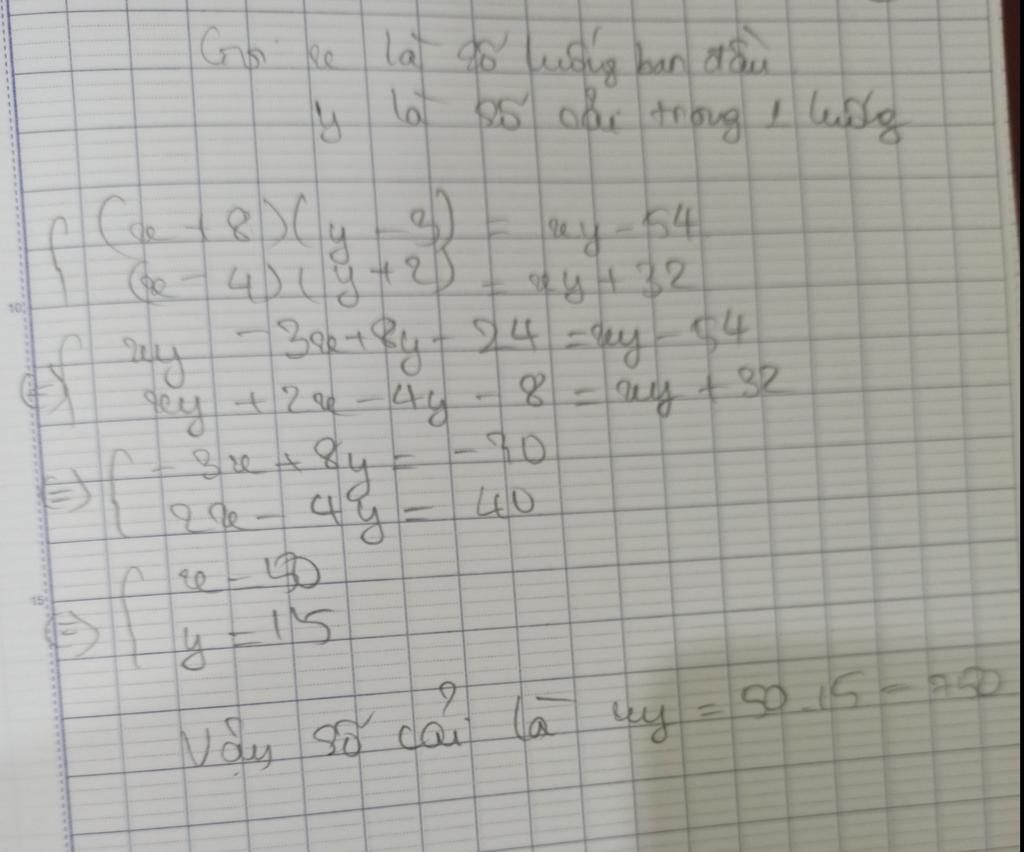 Gọi x là số luống ban đầu
y là số cải trong 1 luống
{ (x + 8)(y - 3) = xy - 54
(x - 4)(y + 2) = xy + 32
<=> { xy - 3x + 8y - 24 = xy - 54
xy + 2x - 4y - 8 = xy + 32
<=> { - 3x + 8y = - 30
2x - 4y = 40
<=> { x = 50
y = 15
10
15
Vậy số cải là xy = 50.15 = 750